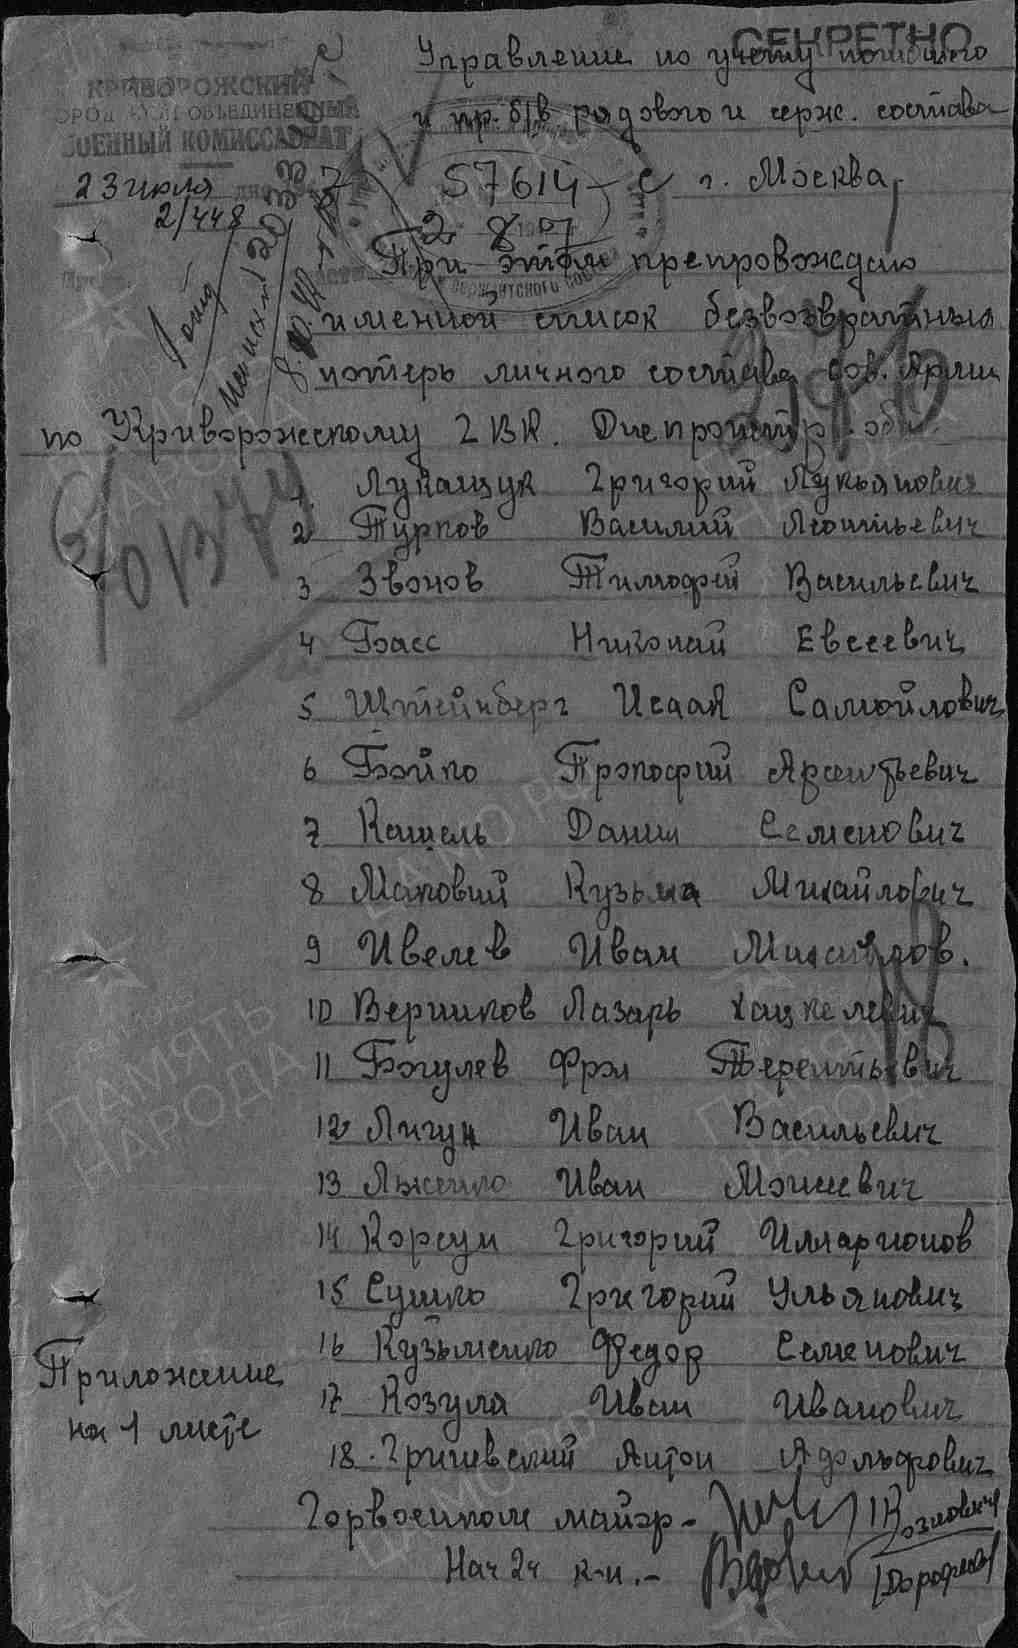 СЕКРЕТНО
Управление по учету погибшего
и пр. б/в рядового и серж. состава
КРИВОРОЖСКИЙ
ОБЪЕДИНЕННЫЙ
ВОЕННЫЙ КОМИССАРИАТ
23 июля
2/448
57614-с г. Москва,
2 8
При этом препровождаю
именной список безвозвратных
потерь личного состава Сов. Армии
по Криворожскому ГВК. Днепропетр. обл.
1. Лукащук Григорий Лукьянович
2 Турков Василий Леонтьевич
3 Звонов Тимофей Васильевич
4 Басс Николай Евсеевич
5 Штейнберг Исаак Самойлович
6 Бойко Прокофий Арсентьевич
7 Кашель Данил Семенович
8 Маковий Кузьма Михайлович
9 Ивелев Иван Михайлов.
10 Вершков Лазарь Хацкелевич
11 Богулев Фрол Терентьевич
12 Лигун Иван Васильевич
13 Лысенко Иван Моисеевич
14 Корсун Григорий Илларионов
15 Сушко Григорий Ульянович
16 Кузьменко Федор Семенович
17 Козуля Иван Иванович
18. Гричевский Антон Адольфович
Приложение
на 1 листе
Горвоенком майор -
Нач 2ч к-н.-